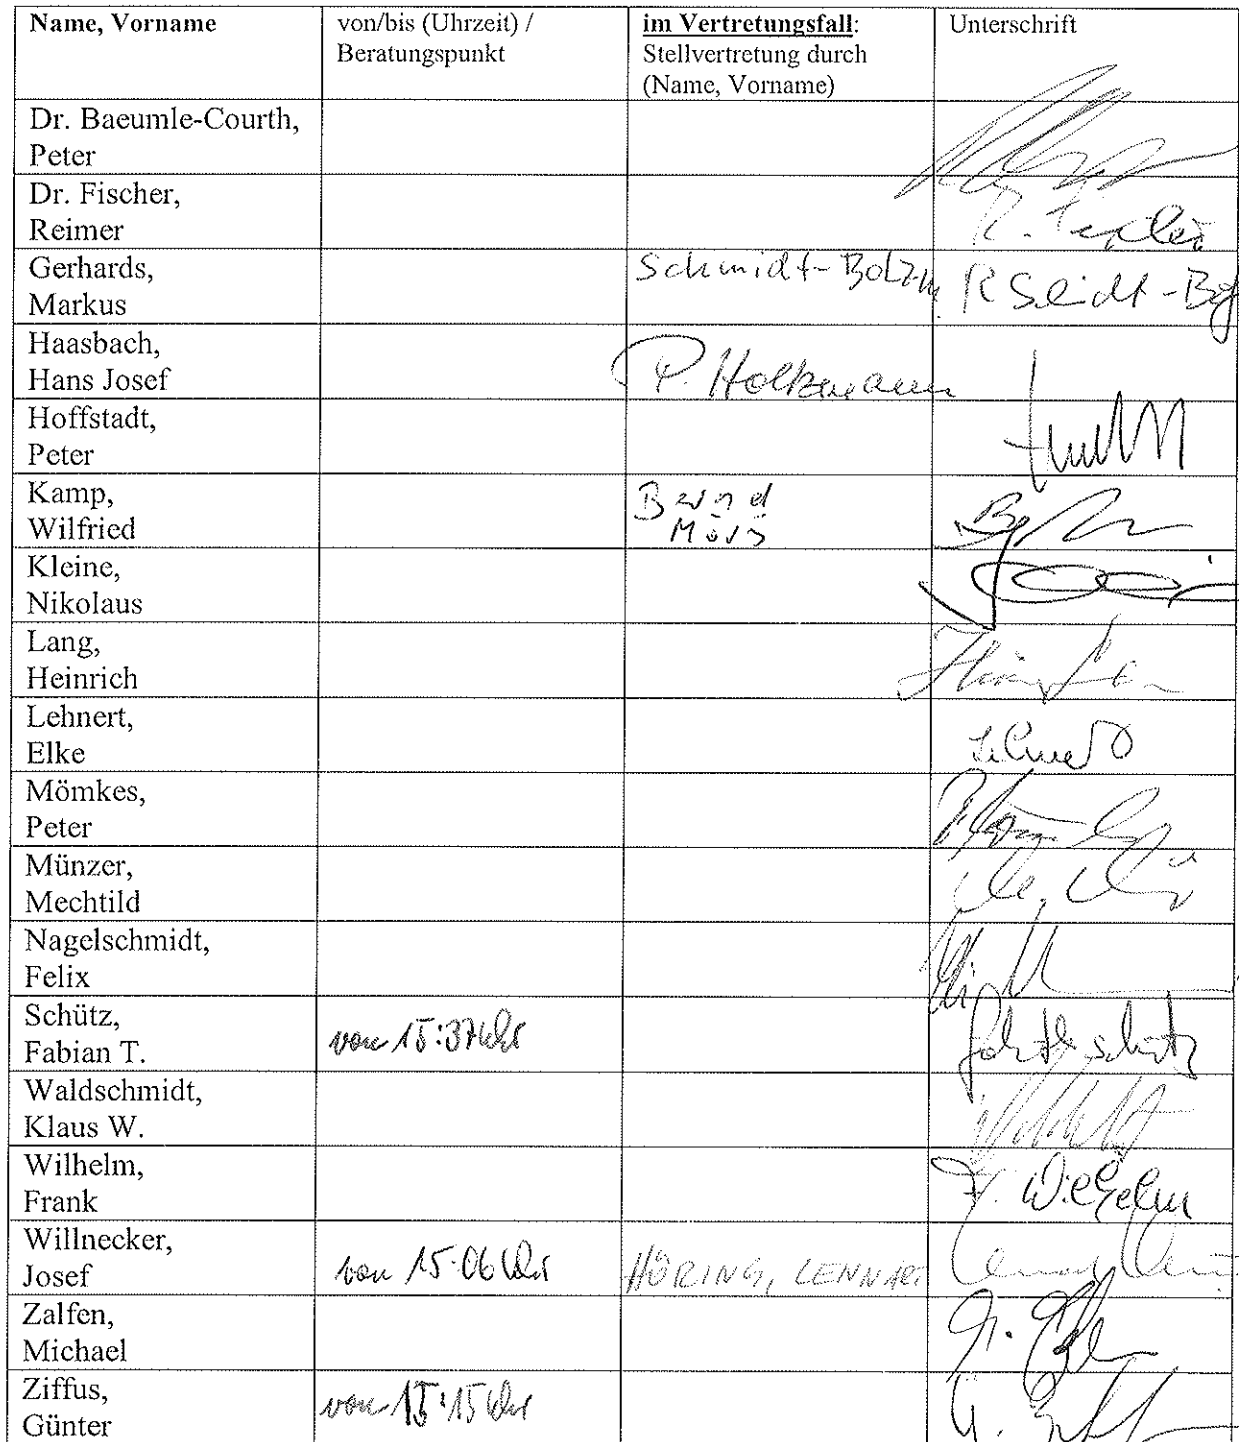 Name, Vorname
von/bis (Uhrzeit) /
Beratungspunkt
im Vertretungsfall:
Stellvertretung durch
(Name, Vorname)
Unterschrift
Dr. Baeumle-Courth,
Peter
Dr. Fischer,
Reimer
R.
Gerhards,
Markus
Schmidt-Bolzm.
Haasbach,
Hans Josef
P. Holtzmann
Hoffstadt,
Peter
Kamp,
Wilfried
Bernd
Kleine,
Nikolaus
Lang,
Heinrich
Lehnert,
Elke
Mömkes,
Peter
Münzer,
Mechtild
Nagelschmidt,
Felix
Schütz,
Fabian T.
von 15:37 Uhr
Waldschmidt,
Klaus W.
Wilhelm,
Frank
F. Wilhelm
Willnecker,
Josef
von 15:06 Uhr
HÖRING, LENNART
Zalfen,
Michael
Ziffus,
Günter
von 15:15 Uhr